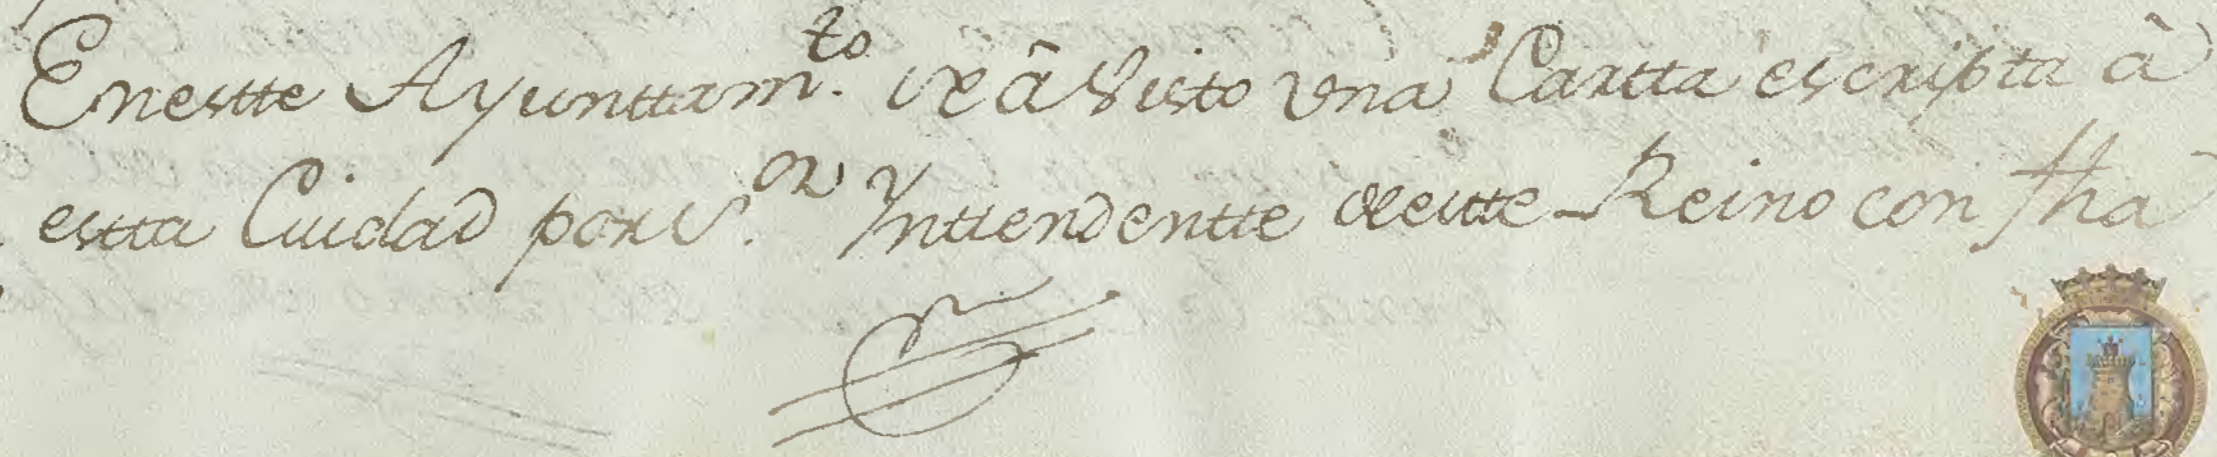 Enestte Ayunttam.to se â visto vna Cartta escripta à
estta Ciudad por el S.or Ynttendentte destte Reino con fha